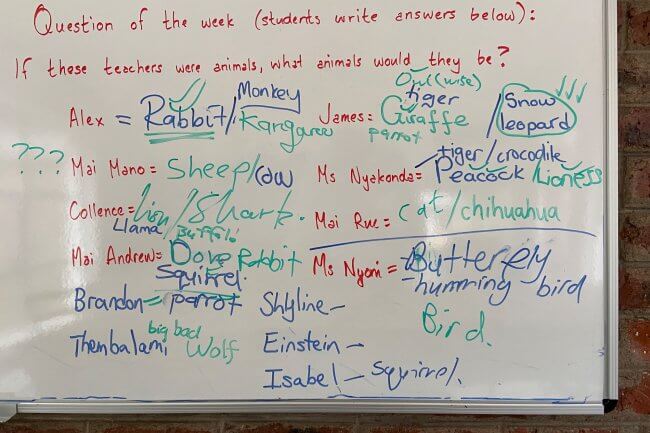 Question of the week (students write answers below):
If these teachers were animals, what animals would they be?
Owl (wise)
Monkey
tiger
Alex = Rabbit/Kangaroo
James = Giraffe / Snow leopard
parrot
tiger/crocodile
??? Mai Mano = Sheep/cow
Ms Nyakonda = Peacock/Lioness
Collence = lion/Shark.
Mai Rue = cat/chihuahua
Llama Buffalo
Mai Andrew = Dove Rabbit
Ms Nyoni = Butterfly
Squirrel.
humming bird
Brandon = parrot
Shyline –
Bird.
big bad
Thembalami Wolf
Einstein –
Isabel – Squirrel.